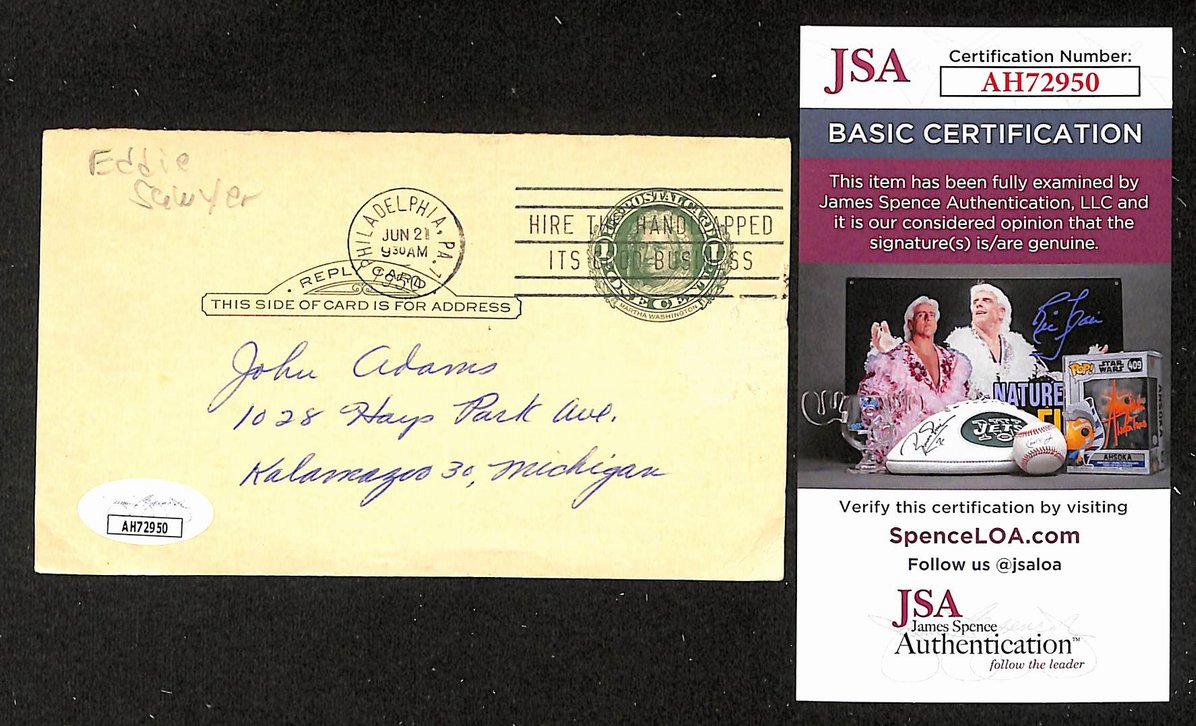 Eddie
Sawyer
PHILADELPHIA, PA.
JUN 21
930AM
1950
HIRE THE HANDICAPPED
ITS GOOD BUSINESS
U.S. POSTAL CARD
1 1
ONE CENT
MARTHA WASHINGTON
REPLY CARD
THIS SIDE OF CARD IS FOR ADDRESS
John Adams
1028 Hays Park Ave.
Kalamazoo 30, Michigan
AH72950
JSA
Certification Number:
AH72950
BASIC CERTIFICATION
This item has been fully examined by
James Spence Authentication, LLC and
it is our considered opinion that the
signature(s) is/are genuine.
Ric Flair
NATURE
POP!
STAR WARS
409
JETS
AHSOKA
Verify this certification by visiting
SpenceLOA.com
Follow us @jsaloa
JSA
James Spence
Authentication™
follow the leader